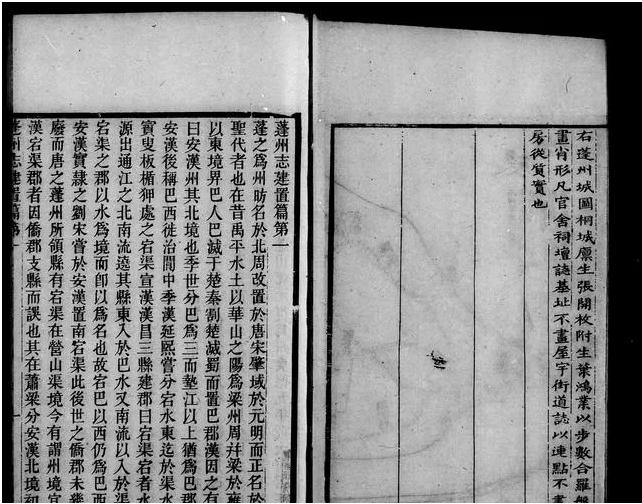 右蓬州城圖桐城廩生張開枚附生葉鴻業以步數合羅盤
畫肖形凡官舍祠壇誌基址不畫屋宇街道誌以連點不畫
房從質實也
蓬州志建置篇第一
蓬之爲州昉名於北周改置於唐宋肇域於元明而正名於
聖代者也在昔禹平水土以華山之陽爲梁州周幷梁於雍
以東境界巴人巴滅于楚秦割楚滅蜀而置巴郡漢因之有
曰安漢州其北境也季世分巴爲三而墊江以上猶爲巴
安漢後稱巴西徙治閬中季漢延熙嘗分宕水東迄於渠
賨叟板楯狎處之宕渠宣漢漢昌三縣建郡曰宕渠宕者水
源出通江之北南流遶其縣東入於巴水又南流以入於渠
宕渠之郡以水爲境而卽以爲名也故宕巴以西仍爲巴西
安漢實隸之劉宋嘗於安漢置南宕渠此後世之僑郡未幾
廢而唐之蓬州所領縣有宕渠在營山渠境今有謂州境宜
漢宕渠郡者因僑郡支縣而誤也其在蕭梁分安漢北境初
蓬州志建置篇第一